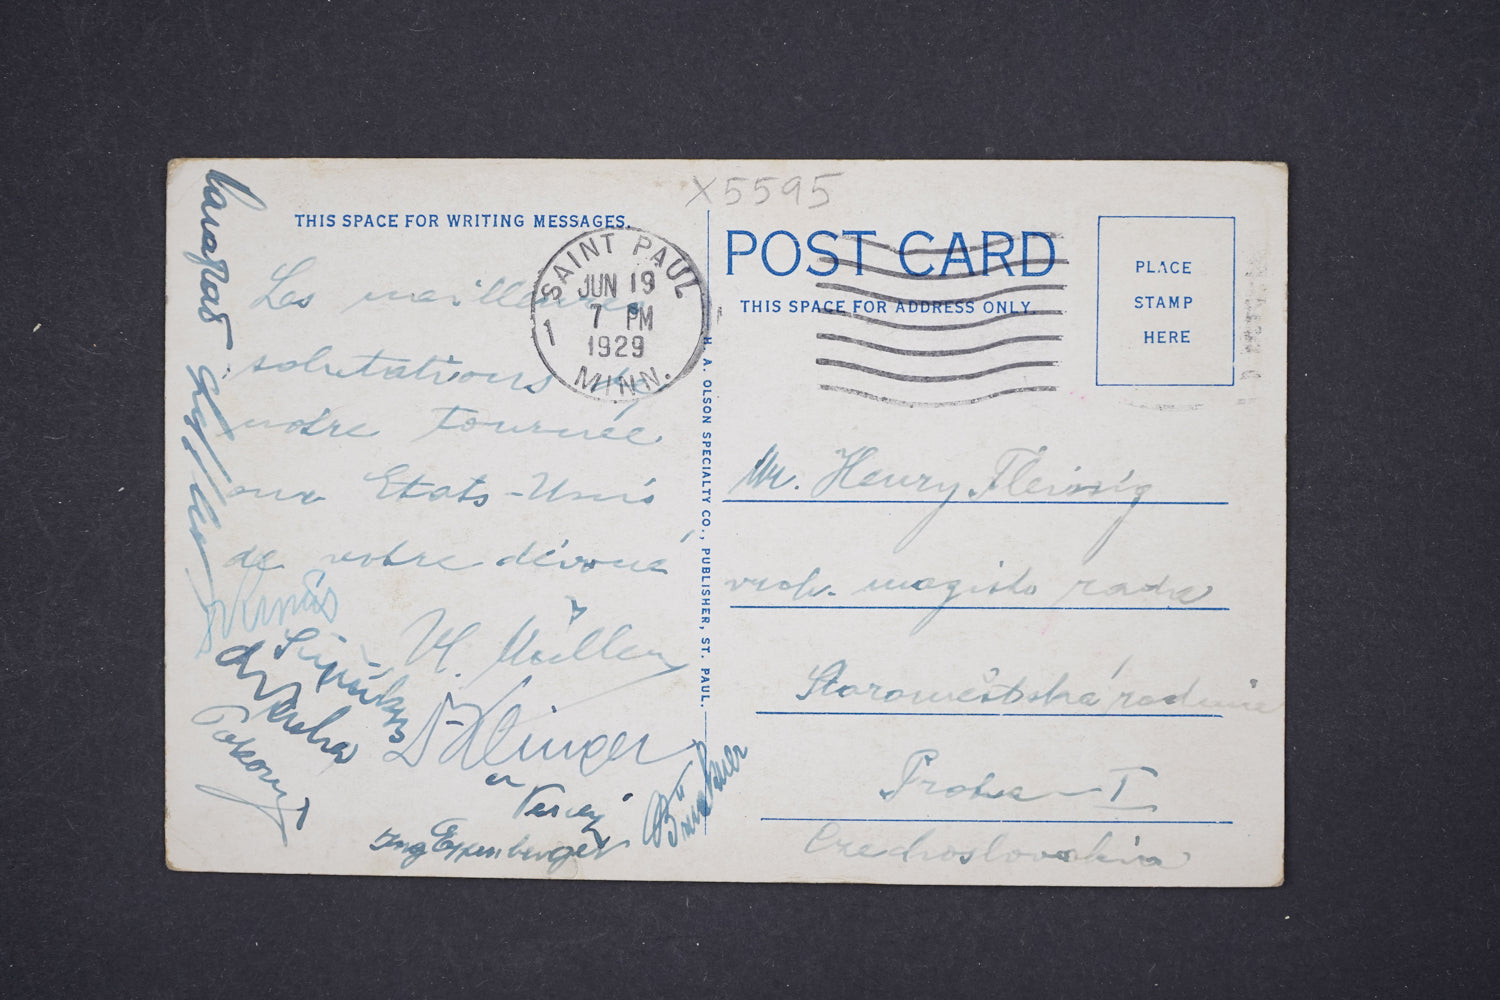 X5595
THIS SPACE FOR WRITING MESSAGES.
SAINT PAUL
JUN 19
7 PM
1
1929
MINN.
Les meilleures
salutations de
notre tournée
aux Etats-Unis
de votre dévoué
H. Müller
Klinger
Ing Eppenberger
Pokorny
H. A. OLSON SPECIALTY CO., PUBLISHER, ST. PAUL.
POST CARD
THIS SPACE FOR ADDRESS ONLY.
PLACE
STAMP
HERE
Mr. Henry Fleissig
vrch. magistr. rada
Staroměstská radnice
Praha - I
Czechoslovakia